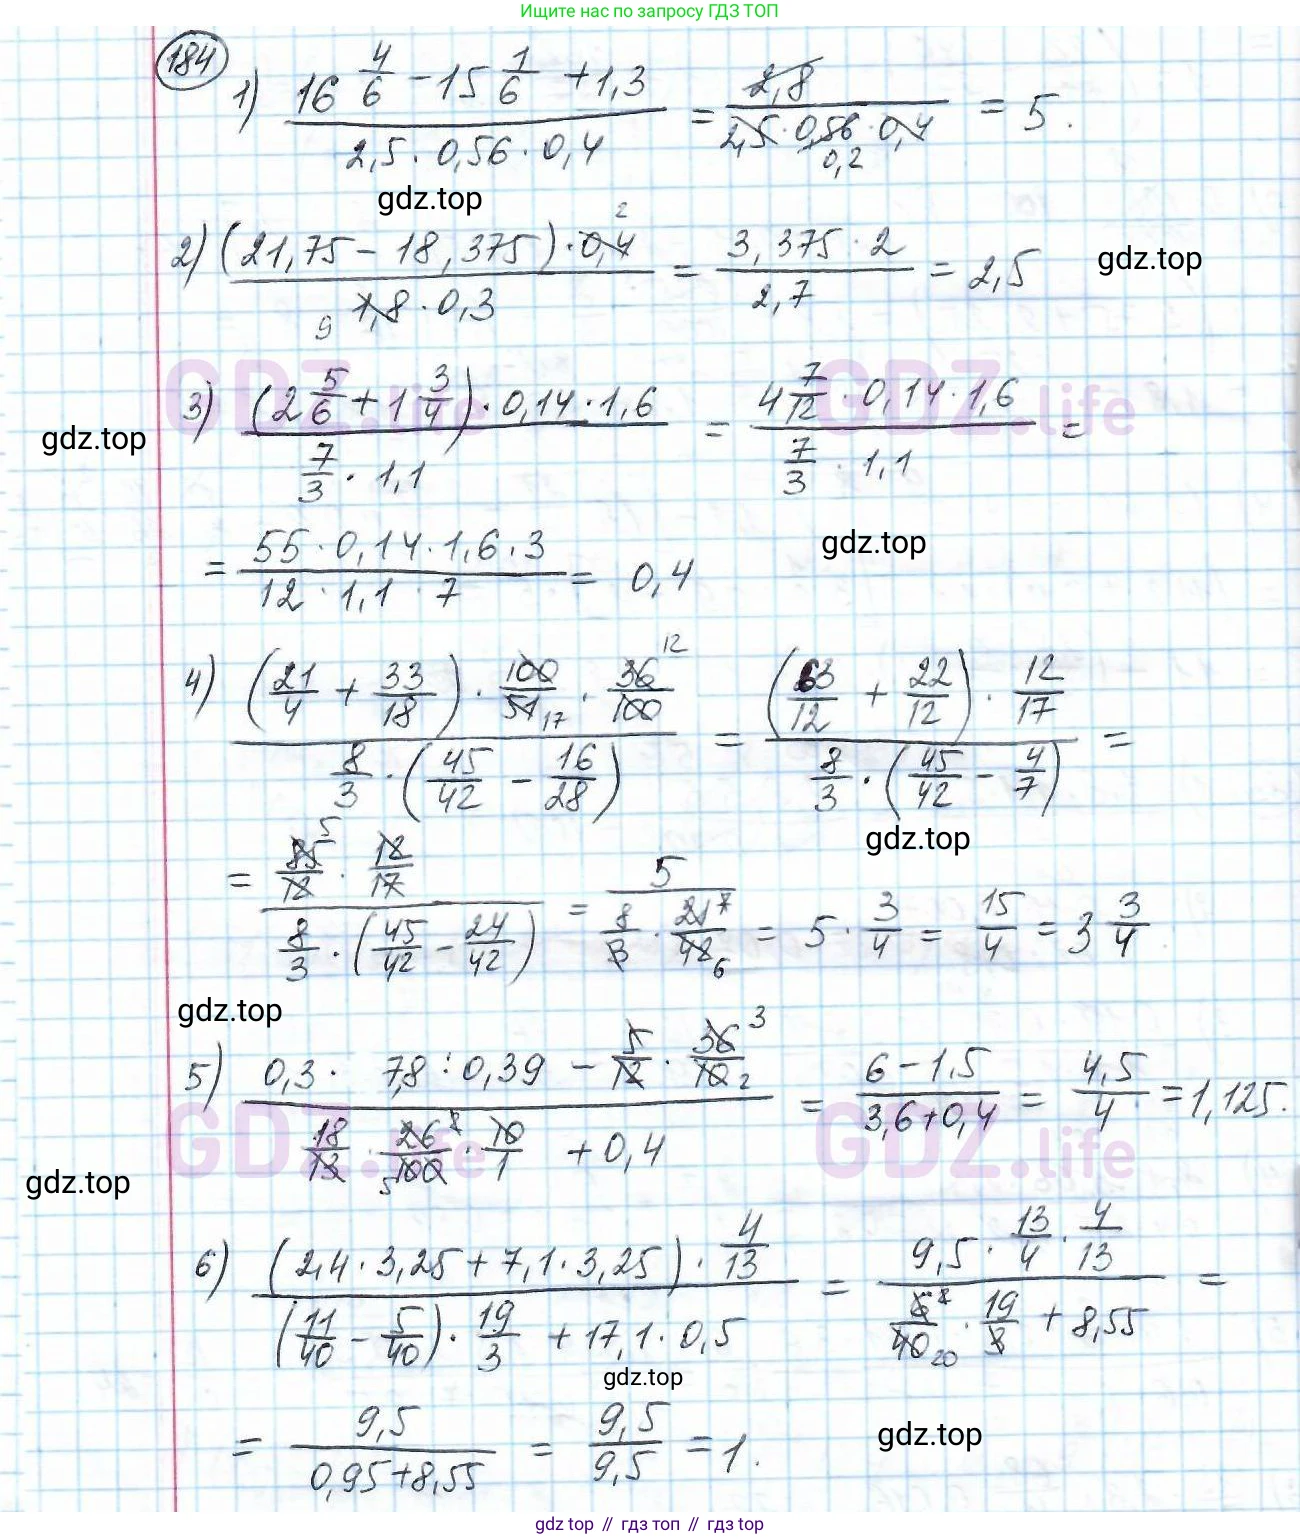 Ищите нас по запросу ГДЗ ТОП
184
1) (16 4/6 - 15 1/6 + 1,3) / (2,5 · 0,56 · 0,4) = 2,8 / (2,5 · 0,56 · 0,4) = 5.
0,2
gdz.top
2) (21,75 - 18,375) · 0,4 / (1,8 · 0,3) = 3,375 · 2 / 2,7 = 2,5
2
9
gdz.top
GDZ.life GDZ.life
3) (2 5/6 + 1 3/4) · 0,14 · 1,6 / (7/3 · 1,1) = 4 7/12 · 0,14 · 1,6 / (7/3 · 1,1) =
gdz.top
= 55 · 0,14 · 1,6 · 3 / (12 · 1,1 · 7) = 0,4
gdz.top
4) (21/4 + 33/18) · 100/51 · 36/100 / (8/3 · (45/42 - 16/28)) = (63/12 + 22/12) · 12/17 / (8/3 · (45/42 - 4/7)) =
12
17
gdz.top
= 85/12 · 12/17 / (8/3 · (45/42 - 24/42)) = 5 / (8/3 · 21/42) = 5 · 3/4 = 15/4 = 3 3/4
5
7
6
gdz.top
5) (0,3 · 7,8 : 0,39 - 5/12 · 36/10) / (18/13 · 26/100 · 10/1 + 0,4) = (6 - 1,5) / (3,6 + 0,4) = 4,5 / 4 = 1,125.
3
2
5
GDZ.life GDZ.life
gdz.top
6) (2,4 · 3,25 + 7,1 · 3,25) · 4/13 / ((11/40 - 5/40) · 19/3 + 17,1 · 0,5) = 9,5 · 13/4 · 4/13 / (6/40 · 19/3 + 8,55) =
20
gdz.top
= 9,5 / (0,95 + 8,55) = 9,5 / 9,5 = 1.
gdz.top
gdz top // гдз топ // гдз top